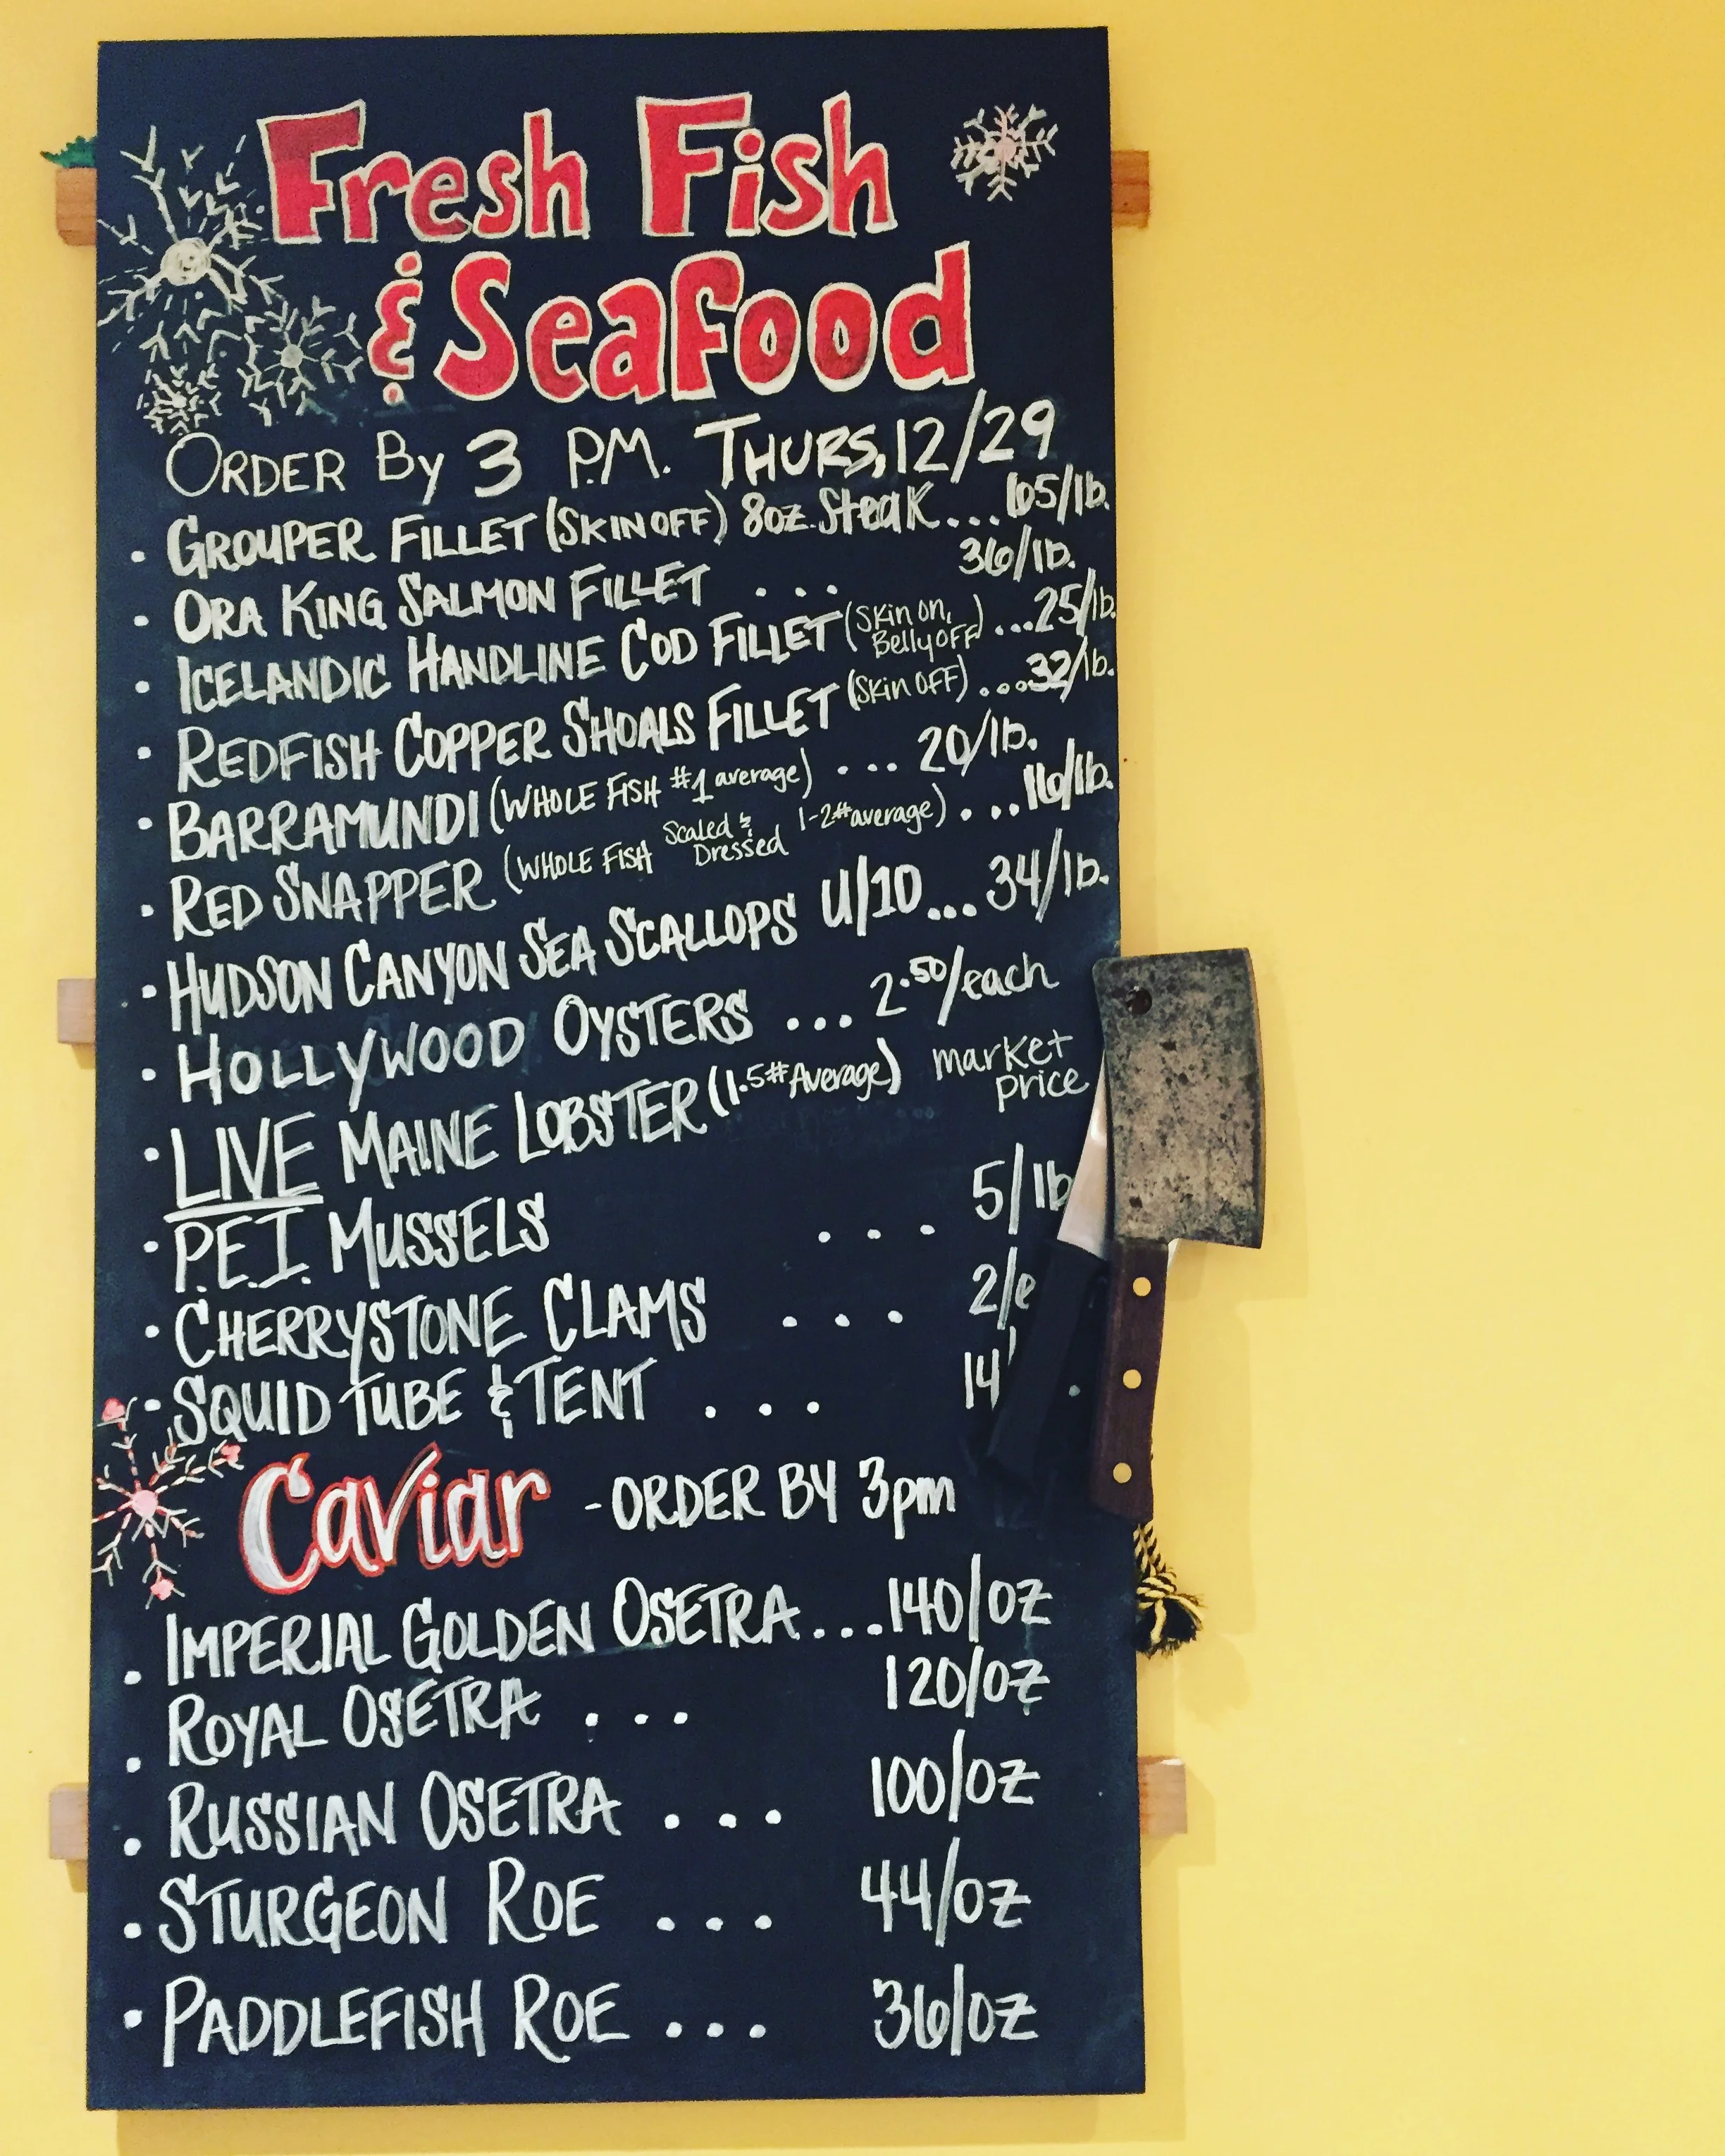 Fresh Fish
& Seafood
ORDER By 3 P.M. THURS, 12/29
• GROUPER FILLET (SKIN OFF) 8oz. Steak... 65/lb.
• ORA KING SALMON FILLET ... 36/lb.
• ICELANDIC HANDLINE COD FILLET (Skin on, Belly OFF) ...25/lb.
• REDFISH COPPER SHOALS FILLET (Skin OFF) ...32/lb.
• BARRAMUNDI (WHOLE FISH #1 average) ... 20/lb.
• RED SNAPPER (WHOLE FISH Scaled & Dressed 1-2# average) ...16/lb.
• HUDSON CANYON SEA SCALLOPS U/10... 34/lb.
• HOLLYWOOD OYSTERS ... 2.50/each
• LIVE MAINE LOBSTER (1.5# Average) market price
• P.E.I. MUSSELS ... 5/lb
• CHERRYSTONE CLAMS ... 2/e
• SQUID TUBE & TENT ... 14
Caviar - ORDER BY 3pm
• IMPERIAL GOLDEN OSETRA...140/oz
• ROYAL OSETRA ... 120/oz
• RUSSIAN OSETRA ... 100/oz
• STURGEON ROE ... 44/oz
• PADDLEFISH ROE ... 36/oz